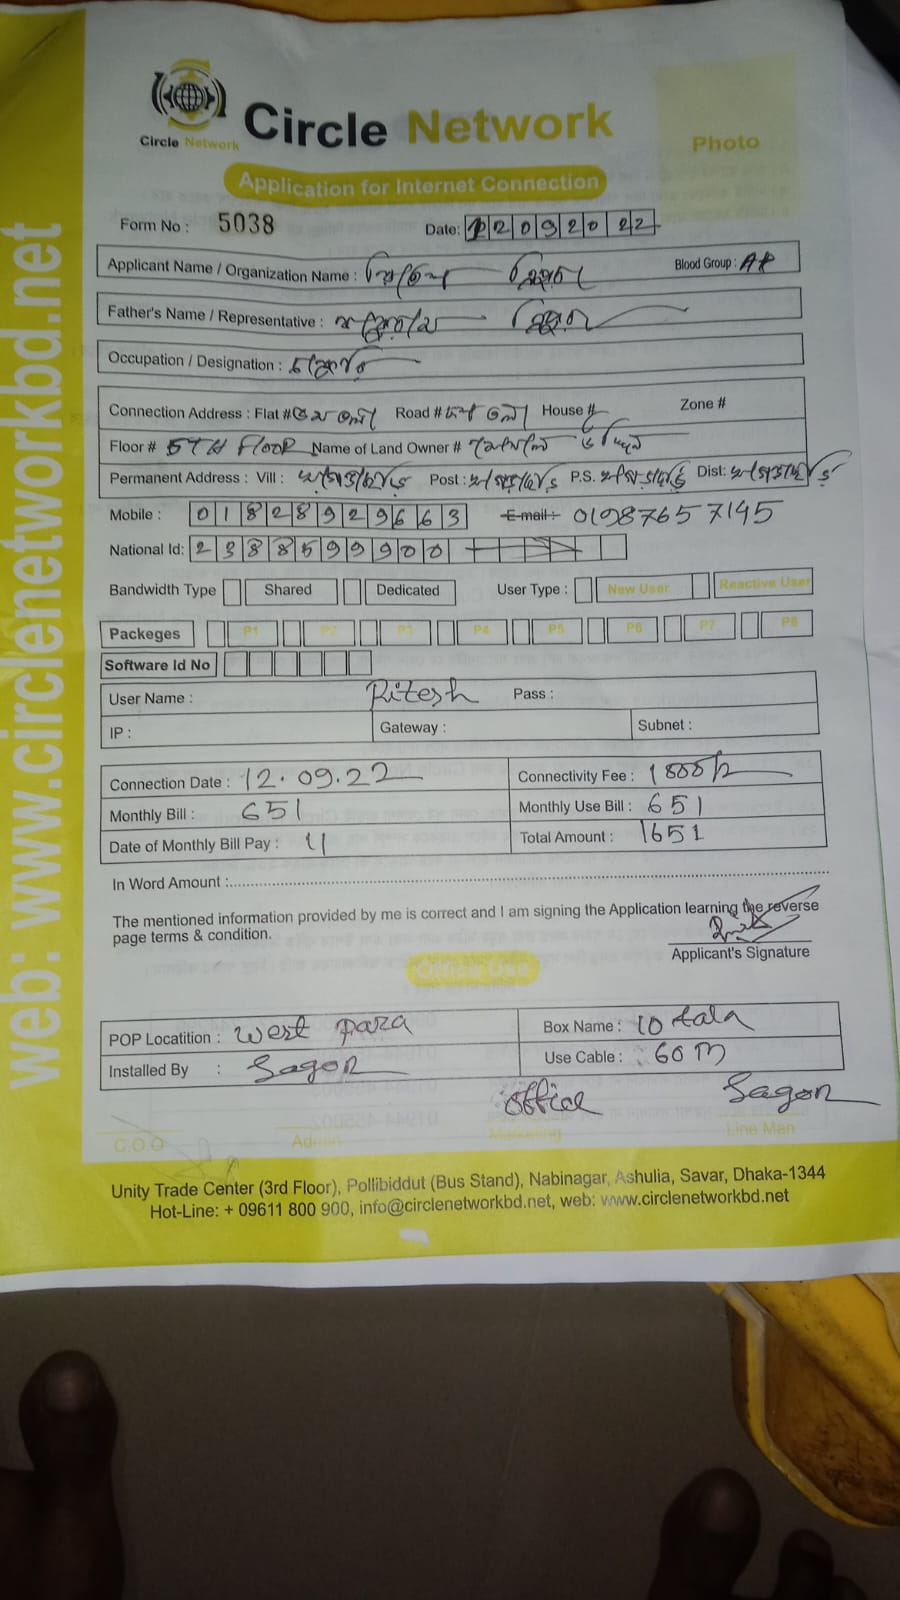 web: www.circlenetworkbd.net
Circle Network
Circle Network
Photo
Application for Internet Connection
Form No : 5038
Date: 12092022
Applicant Name / Organization Name :
Blood Group :
Father's Name / Representative :
Occupation / Designation :
Connection Address : Flat # Road # House # Zone #
Floor # 5TH FlooR Name of Land Owner #
Permanent Address : Vill : Post : P.S. Dist:
Mobile : 01828929663 E-mail: 01987657145
National Id: 2388599900
Bandwidth Type Shared Dedicated User Type : New User Reactive User
Packeges P1 P2 P3 P4 P5 P6 P7 P8
Software Id No
User Name : Ritesh Pass :
IP : Gateway : Subnet :
Connection Date : 12.09.22 Connectivity Fee :
Monthly Bill : 651 Monthly Use Bill : 651
Date of Monthly Bill Pay : 11 Total Amount : 1651
In Word Amount :
The mentioned information provided by me is correct and I am signing the Application learning the reverse
page terms & condition.
Applicant's Signature
Office Use
POP Locatition : West para Box Name : 10 tala
Installed By : Sagor Use Cable : 60 m
office Sagor
C.O.O Admin Marketing Line Man
Unity Trade Center (3rd Floor), Pollibiddut (Bus Stand), Nabinagar, Ashulia, Savar, Dhaka-1344
Hot-Line: + 09611 800 900, info@circlenetworkbd.net, web: www.circlenetworkbd.net